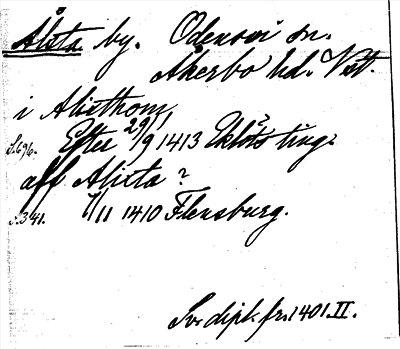 Ålsta by. Odensvi sn.
Åkerbo hd. Vst.
i Alisthom
S. 696. Efter 29/9 1413 Eklöts ting.
aff Alista?
S. 341. 1/11 1410 Flensburg.
Sv. dipl. fr. 1401. II.